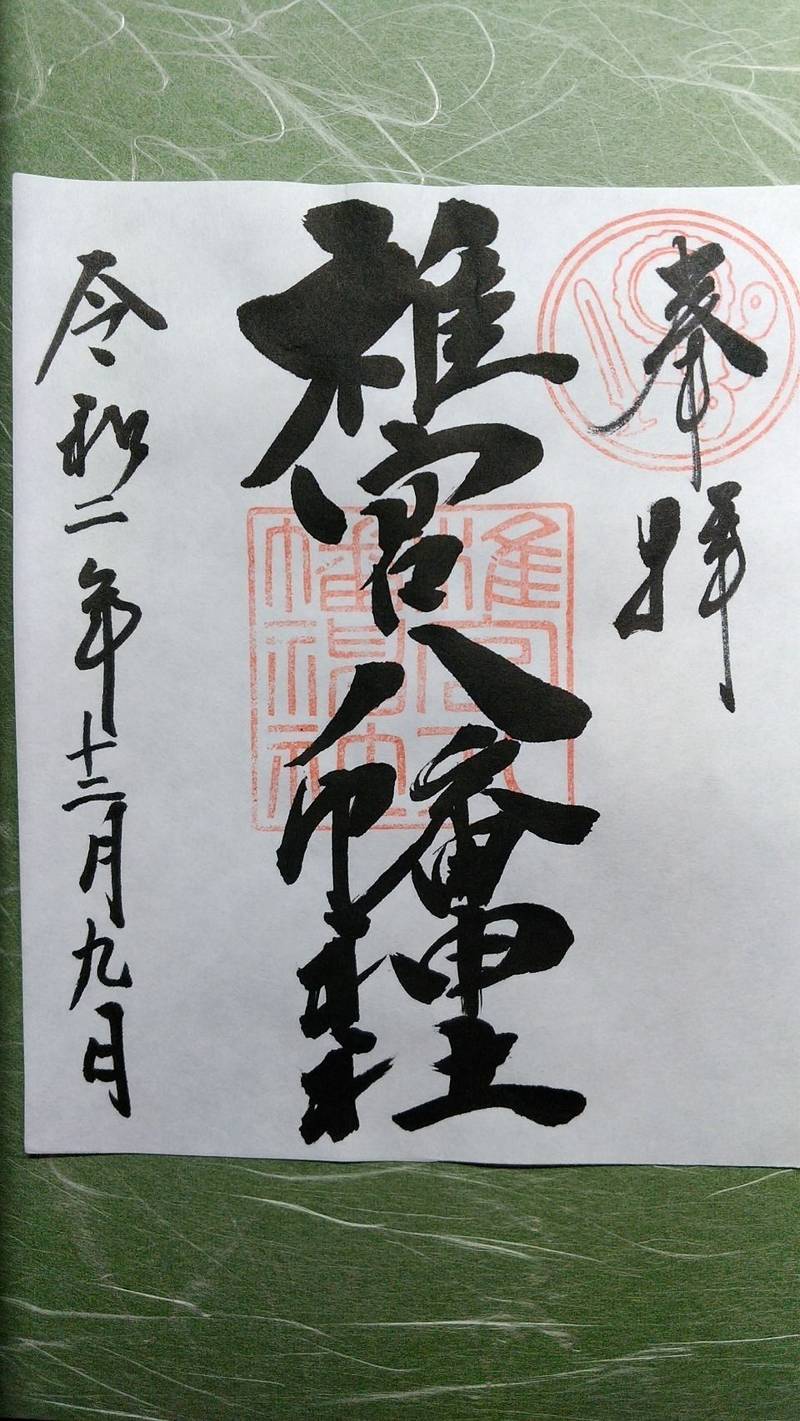 奉拝
椎宮八幡神社
令和二年十二月九日
椎宮八幡神社